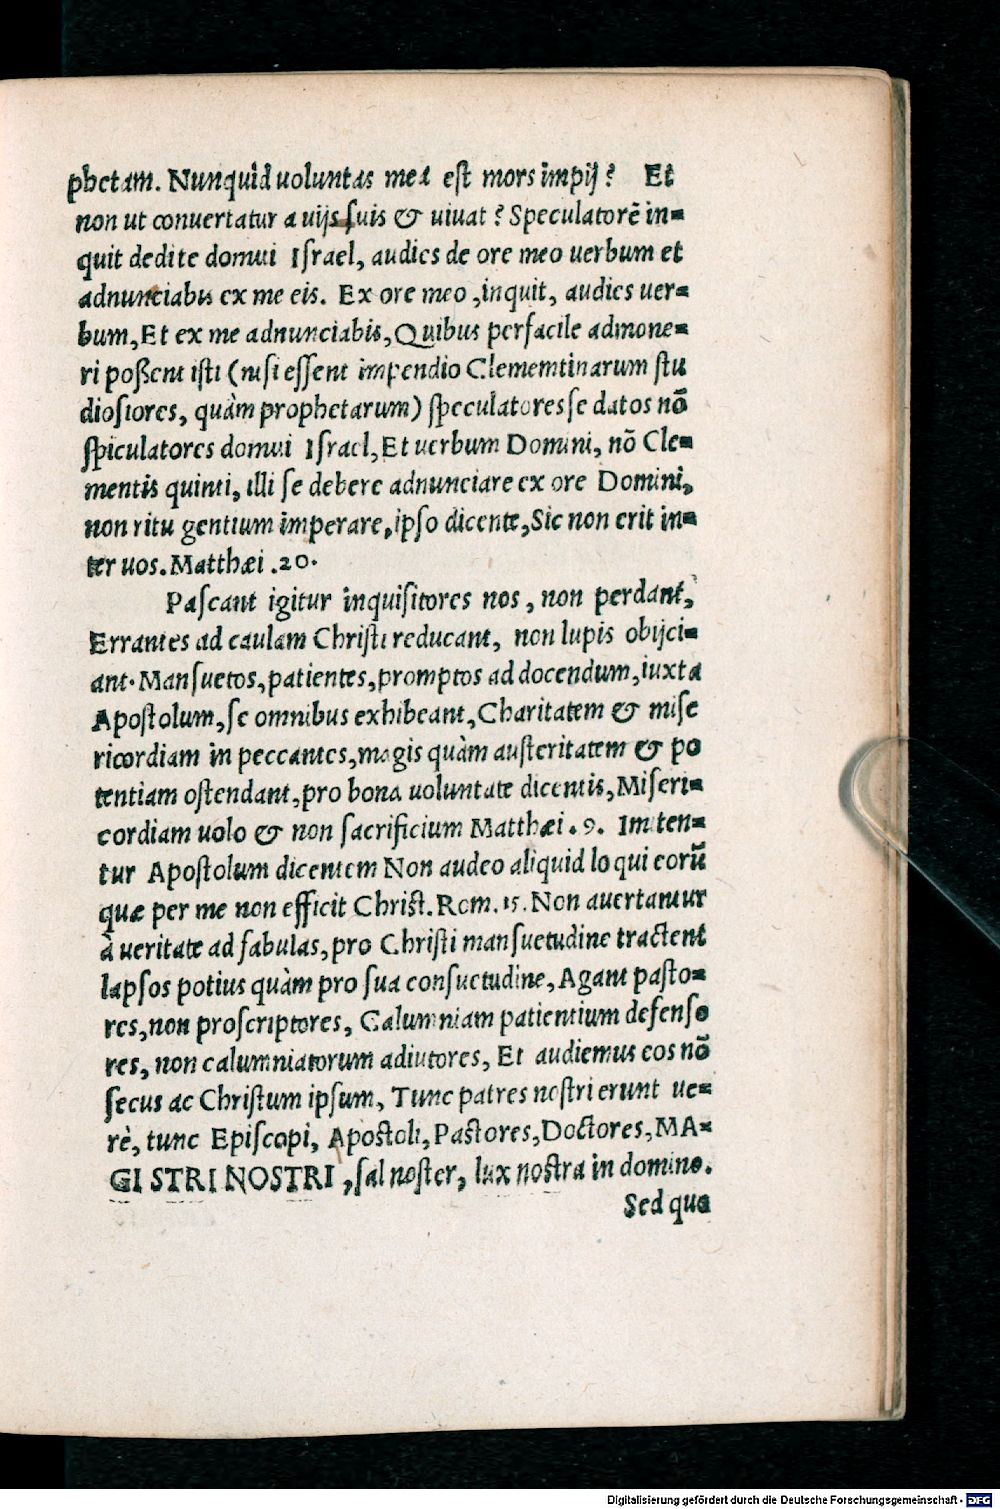 phetam. Nunquid uoluntas mea est mors impij? Et
non ut conuertatur a uijs suis & uiuat? Speculatorē in=
quit dedi te domui Israel, audies de ore meo uerbum et
adnunciabis ex me eis. Ex ore meo, inquit, audies uer=
bum, Et ex me adnunciabis, Quibus perfacile admone=
ri poßent isti (nisi essent impendio Clememtinarum stu
diosiores, quàm prophetarum) speculatores se datos nō
spiculatores domui Israel, Et uerbum Domini, nō Cle=
mentis quinti, illi se debere adnunciare ex ore Domini,
non ritu gentium imperare, ipso dicente, Sic non erit in=
ter uos. Matthæi .20.
Pascant igitur inquisitores nos, non perdant,
Errantes ad caulam Christi reducant, non lupis obijci=
ant. Mansuetos, patientes, promptos ad docendum, iuxta
Apostolum, se omnibus exhibeant, Charitatem & mise
ricordiam in peccantes, magis quàm austeritatem & po
tentiam ostendant, pro bona uoluntate dicentis, Miseri=
cordiam uolo & non sacrificium Matthæi .9. Imiten=
tur Apostolum dicentem Non audeo aliquid loqui eorū
quæ per me non efficit Christ. Rom. 15. Non auertantur
à ueritate ad fabulas, pro Christi mansuetudine tractent
lapsos potius quàm pro sua consuetudine, Agant pasto=
res, non proscriptores, Calumniam patientium defenso
res, non calumniatorum adiutores, Et audiemus eos nō
secus ac Christum ipsum, Tunc patres nostri erunt ue=
rè, tunc Episcopi, Apostoli, Pastores, Doctores, MA=
GISTRI NOSTRI, sal noster, lux nostra in domino.
Sed qua
Digitalisierung gefördert durch die Deutsche Forschungsgemeinschaft - DFG